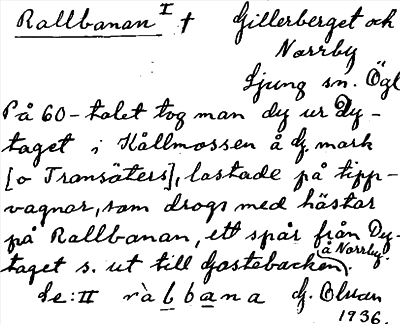 Rallbanan I † Gillerberget och
Norrby
Ljung sn. Ögl
På 60-talet tog man dy ur Dy-
taget i Kållmossen å G. mark
[o Transäters], lastade på tipp-
vagnar, som drogs med hästar
på Rallbanan, ett spår från Dy-
taget s. ut till Gastebacken (å Norrby).
Se: II ràbbana G. Olsson
1936.